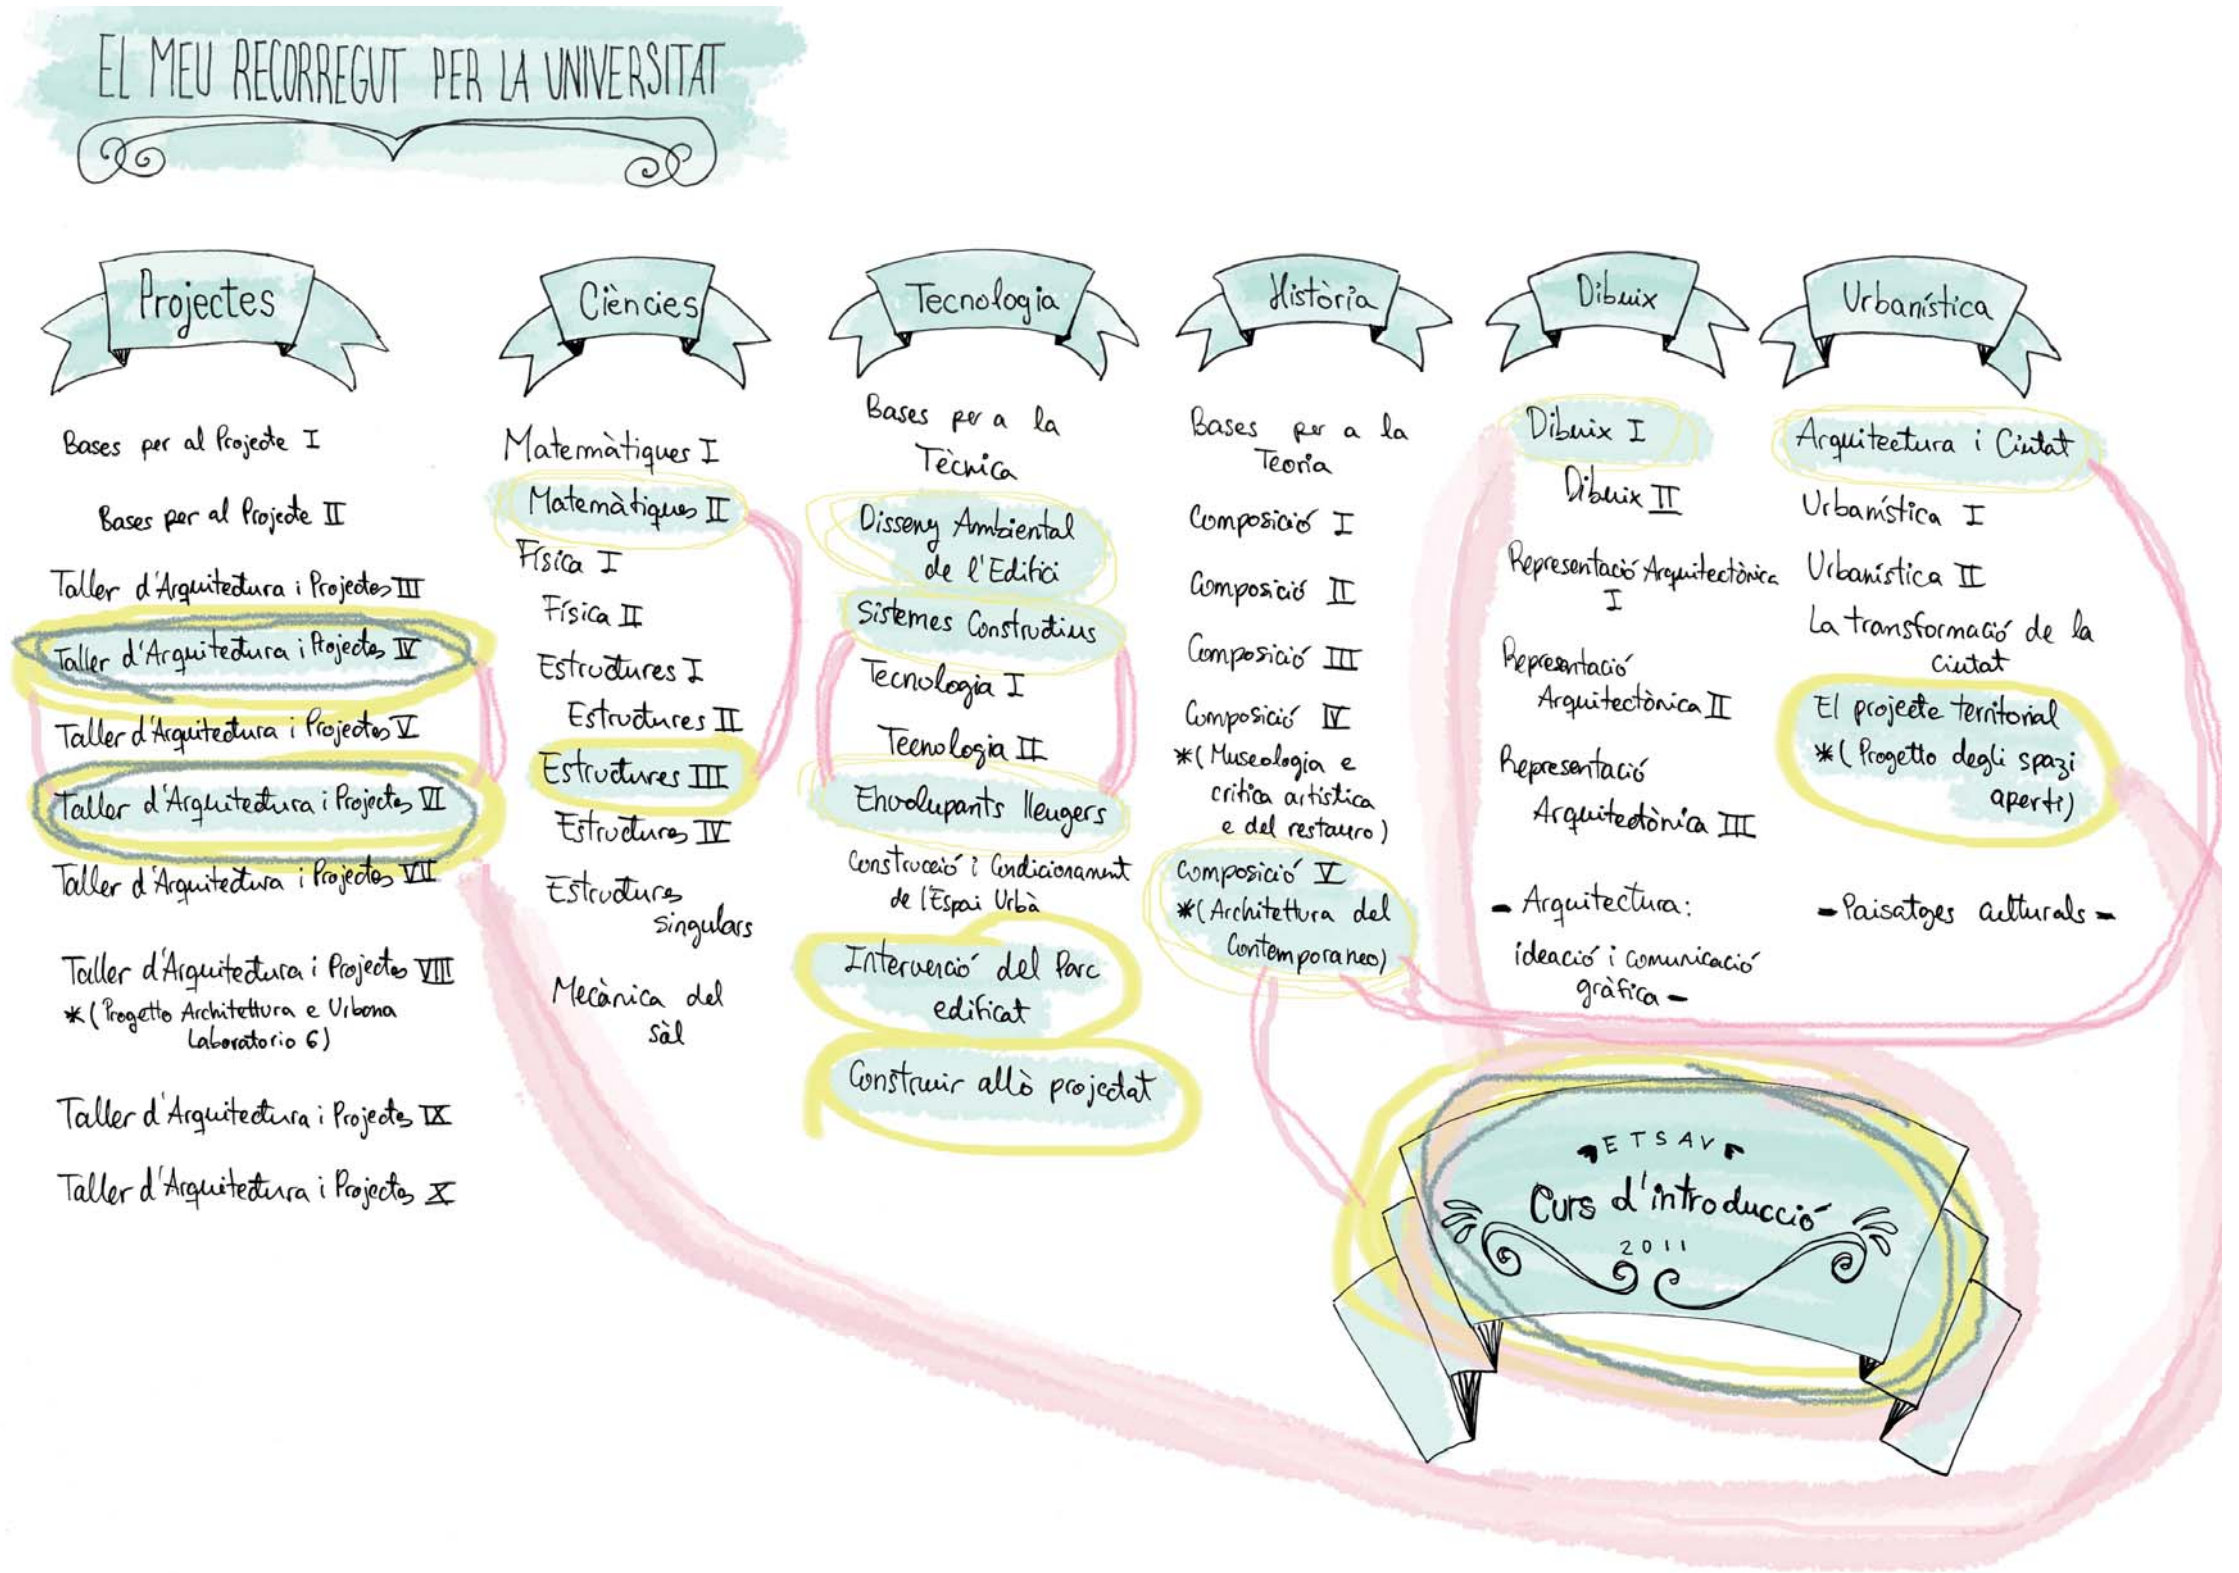 EL MEU RECORREGUT PER LA UNIVERSITAT
Projectes
Bases per al Projecte I
Bases per al Projecte II
Taller d'Arquitectura i Projectes III
Taller d'Arquitectura i Projectes IV
Taller d'Arquitectura i Projectes V
Taller d'Arquitectura i Projectes VI
Taller d'Arquitectura i Projectes VII
Taller d'Arquitectura i Projectes VIII
*(Progetto Architettura e Urbana
Laboratorio 6)
Taller d'Arquitectura i Projectes IX
Taller d'Arquitectura i Projectes X
Ciències
Matemàtiques I
Matemàtiques II
Física I
Física II
Estructures I
Estructures II
Estructures III
Estructures IV
Estructures
singulars
Mecànica del
sòl
Tecnologia
Bases per a la
Tècnica
Disseny Ambiental
de l'Edifici
Sistemes Constructius
Tecnologia I
Tecnologia II
Envolupants lleugers
Construcció i Condicionament
de l'Espai Urbà
Intervenció del Parc
edificat
Construir allò projectat
Història
Bases per a la
Teoria
Composició I
Composició II
Composició III
Composició IV
*(Museologia e
critica artistica
e del restauro)
Composició V
*(Architettura del
Contemporaneo)
Dibuix
Dibuix I
Dibuix II
Representació Arquitectònica
I
Representació
Arquitectònica II
Representació
Arquitectònica III
- Arquitectura:
ideació i comunicació
gràfica -
Urbanística
Arquitectura i Ciutat
Urbanística I
Urbanística II
La transformació de la
ciutat
El projecte territorial
*(Progetto degli spazi
aperti)
- Paisatges culturals -
ETSAV
Curs d'introducció
2011